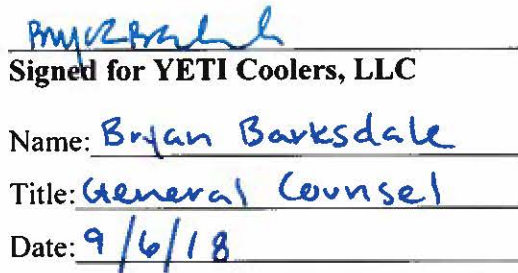 Signed for YETI Coolers, LLC
Name: Bryan Barksdale
Title: General Counsel
Date: 9/6/18